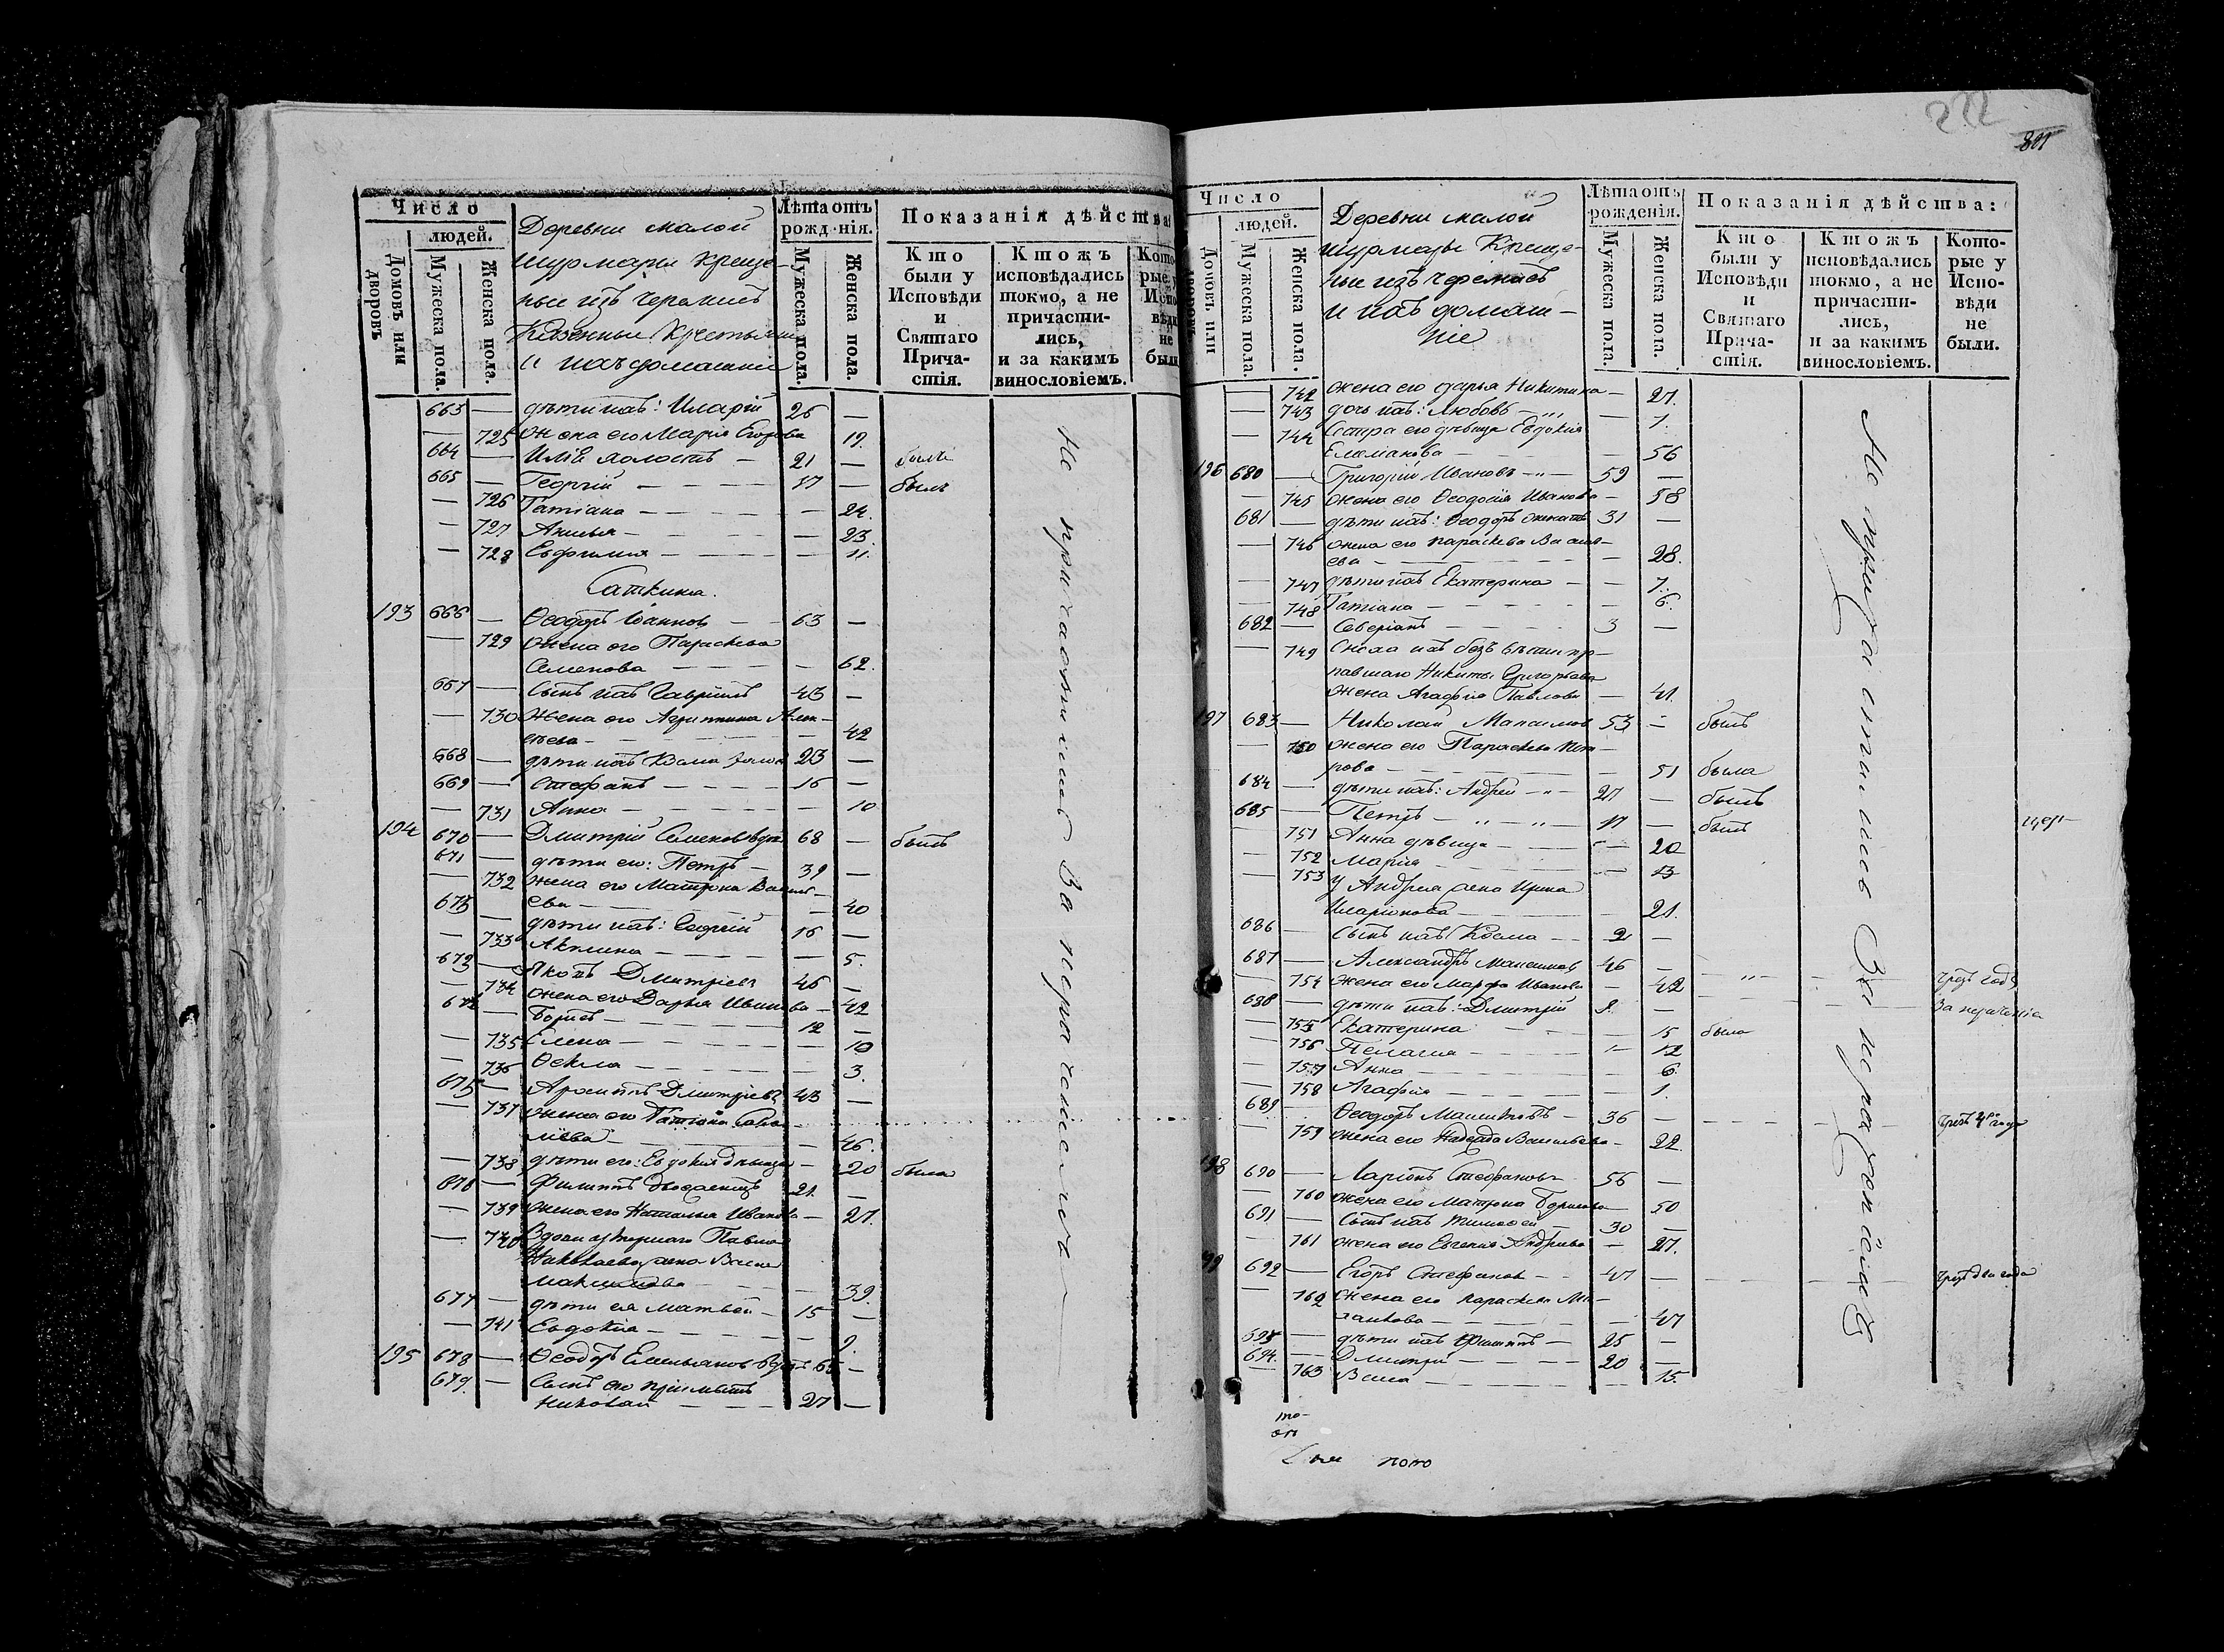 Число
людей.
Домовъ или дворовъ
Мужеска пола.
Женска пола.
Деревни малой
шурмары креще-
ныи изъ черемисъ
Казенныи Крестьяни
и ихъ домашніи
Лѣта отъ рожденія.
Мужеска пола.
Женска пола.
Показанія дѣйства
Кто были у Исповѣди и Святаго Причастія.
Ктожъ исповѣдались токмо, а не причастились, и за какимъ винословіемъ.
663 — дѣти ихъ: Иларій 26 —
— 725 жена его Марія Егорова 19.
664 — Илія холостъ — 21 —
665 — Георгій — 17 — былъ
— 726 Татіана — — 24.
— 727 Акилина — — 23.
— 728 Евфимия — — 11.
193 666 — Ѳеодоръ Іоаннов — 63 —
— 729 жена его Параскева
Семенова — — 62.
667 — Сынъ ихъ Гавріилъ 43 —
— 730 Жена его Агрипина Алек-
сѣева — — 42
668 — дѣти ихъ Козма 23 —
669 — Стефанъ — 16 —
— 731 Анна — — 10
194 670 — Дмитрій Семенов вдов 68 — былъ
671 — дѣти его: Петръ — 39 —
— 732 жена его Матрона Василь-
ева — — 40
— дѣти ихъ: Георгій 16 —
— 733 Акилина — — 5.
673 — Яковъ Дмитріевъ 46 —
— 734 жена его Дарья Иванова — 42
Борисъ — 12 —
— 735 Елена — — 10
— 736 Ѳекла — — 3.
675 — Архиппъ Дмитріевъ 43 —
— 737 жена его Татіана Сав-
— 46.
— 738 дѣти его: Евдокія дѣвица — 20 была
676 — Филиппъ 21. —
— 739 жена его Наталья Иванова — 27.
— 740 Вдова умершаго Павла
Николаева жена Васса
Максимова — — 39.
677 — дѣти ея Матвѣй — 15 —
— 741 Евдокія — — 9.
195 678 — Ѳеодоръ Емельяновъ вдовъ 65 —
679. — Сынъ его пріемышъ
Николай — 27 —
Не причастились За нерачениемъ
222
801
Число
людей.
Мужеска пола.
Женска пола.
Деревни малой
шурмары Креще-
ныи изъ черемисъ
и ихъ домаш-
ніе
Лѣта отъ рожденія.
Мужеска пола.
Женска пола.
Показанія дѣйства:
Кто были у Исповѣди и Святаго Причастія.
Ктожъ исповѣдались токмо, а не причастились, и за какимъ винословіемъ.
Которые у Исповѣди не были.
— 742 жена его Дарья Никитина — 27.
— 743 дочь ихъ: Любовь — 1.
— 744 Сестра его дѣвица Евдокия
Емелианова — — 56
196 680 — Григорій Ивановъ — 59 —
— 745 жена его Ѳеодосія Иванова — 58
681 — дѣти ихъ: Ѳеодоръ женатъ 31 —
— 746 жена его Параскева Василь-
ева — — 28.
— 747 дѣти ихъ Екатерина — — 7.
— 748 Татіана — — 6.
682 — Северіанъ — 3 —
— 749 Сноха ихъ безъ вѣсти пр-
павшаго Никиты Григорьева
жена Агафія Павлова — 41.
197 683 — Николай Максимов 53 — былъ
— 750 жена его Параскева Пет-
рова — — 51 была
684 — дѣти ихъ: Андрей — 27 — былъ
685 — Петръ — 17 — былъ
— 751 Анна дѣвица — — 20
— 752 Марія — — 13
— 753 У Андрея жена Ирина
Иларіонова — — 21.
686 — Сынъ ихъ Козма — 2 —
687 — Александръ Максимов 46 —
— 754 жена его Марфа Иванова — 42
688 — дѣти ихъ: Дмитрій 8. —
— 755 Екатерина — 15 была
— 756 Пелагия — — 12
— 757 Анна — — 6.
— 758 Агафія — — 1.
689 — Ѳеодоръ Максимовъ — 36 —
— 759 жена его Надежда Васильева — 22.
198 690 — Ларіонъ Стефановъ 56 —
— 760 жена его Матрона Борисова — 50
691 — Сынъ ихъ Тимоѳей — 30 —
— 761 жена его Евгенія Андреева — 27.
199 692 — Егоръ Стефанов — 47 —
— 762 жена его Параскева Ми-
хаилова — — 47
693 — дѣти ихъ Филиппъ — 25 —
694. — Дмитрій — 20 —
— 763 Васса — — 15.
Не причастились За нерачениемъ
чрезъ годъ
За нерачениемъ
чрезъ 4 года
чрезъ два года